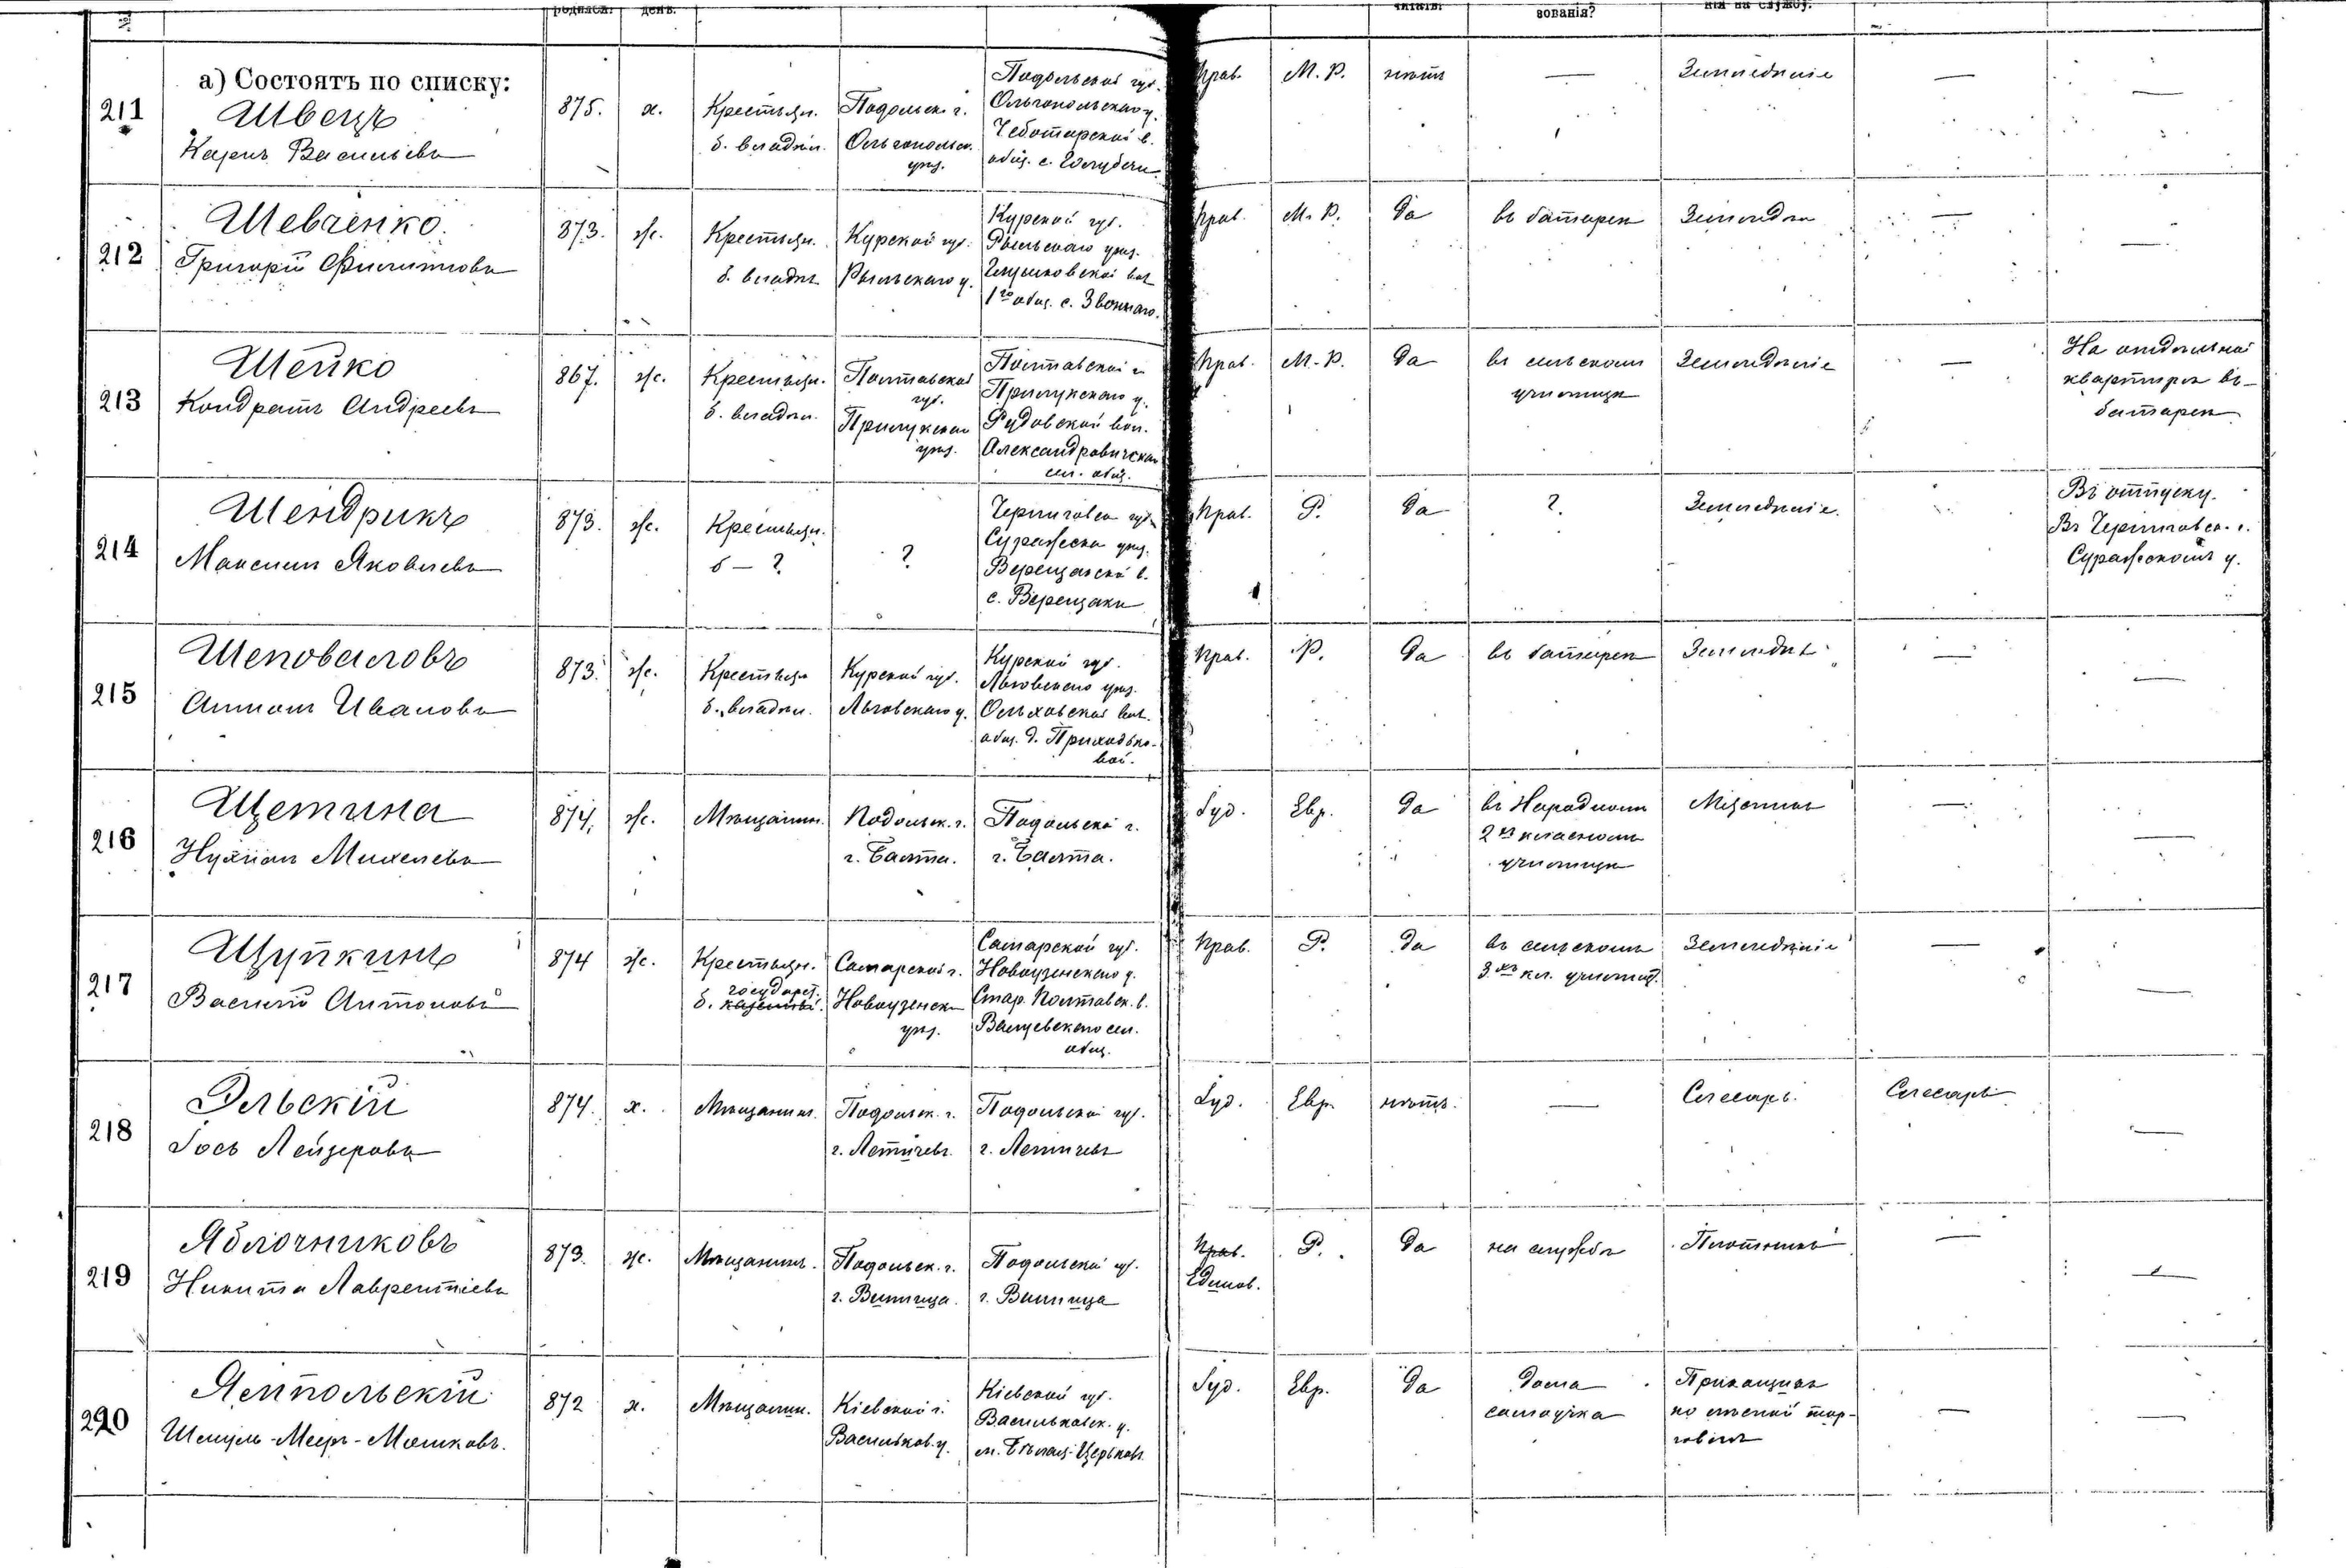 родился.
день.
зованія?
нія на службу.
а) Состоятъ по списку:
211
Швецъ
Карпъ Васильевъ
875.
х.
Крестьян.
б. владѣл.
Подольск. г.
Ольгопольск.
уѣз.
Подольской губ.
Ольгопольскаго у.
Чеботарской в.
общ. с. Голубечи
Прав.
М. Р.
нѣтъ
—
Земледѣліе
—
—
212
Шевченко.
Григорій Филипповъ
873.
ж.
Крестьян.
б. владѣл.
Курской губ.
Рыльскаго у.
Курской губ.
Рыльскаго уѣз.
Глушковской вол.
1го общ. с. Званнаго.
Прав.
М. Р.
да
въ батареѣ
Земледѣл.
—
—
213
Шейко
Кондратъ Андреевъ
867.
ж.
Крестьян.
б. владѣл.
Полтавской
губ.
Прилукскаго
уѣз.
Полтавской г.
Прилукскаго у.
Рудовской вол.
Александровичскаго
сел. общ.
Прав.
М. Р.
да
въ сельскомъ
училищѣ
Земледѣліе
—
На отдѣльной
квартирѣ въ
батареѣ
214
Шендрикъ
Максимъ Яковлевъ
873.
ж.
Крестьян.
б — ?
?
Черниговск. губ.
Суражска уѣз.
Верещакской в.
с. Верещаки
Прав.
Р.
да
?.
Земледѣліе.
Въ отпуску.
Въ Черниговск. г.
Суражскомъ у.
215
Шеповаловъ
Антонъ Ивановъ
873.
ж.
Крестьян
б. владѣл.
Курской губ.
Льговскаго у.
Курской губ.
Льговскаго уѣз.
Ольховской вол.
общ. д. Приходько-
вой.
Прав.
Р.
да
въ батареѣ
Земледѣл.
—
—
216
Щетина
Нухимъ Михелевъ
874.
ж.
Мѣщанин.
Подольск. г.
г. Балта.
Подольской г.
г. Балта.
Іуд.
Евр.
да
въ Народномъ
2хъ класномъ
училищѣ
—
—
217
Щупкинъ
Василій Антоновъ
874
ж.
Крестьян.
государст.
б. казенный.
Самарской г.
Новоузенск.
уѣз.
Самарской губ.
Новоузенскаго у.
Стар. Полтавск. в.
сел.
общ.
Прав.
Р.
да
въ сельскомъ
3хъ кл. училищ.
Земледѣліе
—
—
218
Эльскій
Іось Лейзеровъ
874.
х.
Мѣщанинъ.
Подольск. г.
г. Летичевъ.
Подольской губ.
г. Летичевъ
Іуд.
Евр.
нѣтъ.
—
Слесарь.
Слесарь
—
219
Яблочниковъ
Никита Лаврентіевъ
873.
ж.
Мѣщанинъ.
Подольск. г.
г. Винница.
Подольской губ.
г. Винница
Прав.
Единов.
Р.
да
на службѣ
Плотникъ
—
—
220
Ямпольскій
Шмуль-Меер-Мошковъ.
872
х.
Мѣщанин.
Кіевской г.
Васильков. у.
Кіевской губ.
Васильковск. у.
м. Бѣлая-Церковь.
Іуд.
Евр.
да
дома
самоучка
Приказчикъ
по лѣсной тор-
говлѣ
—
—